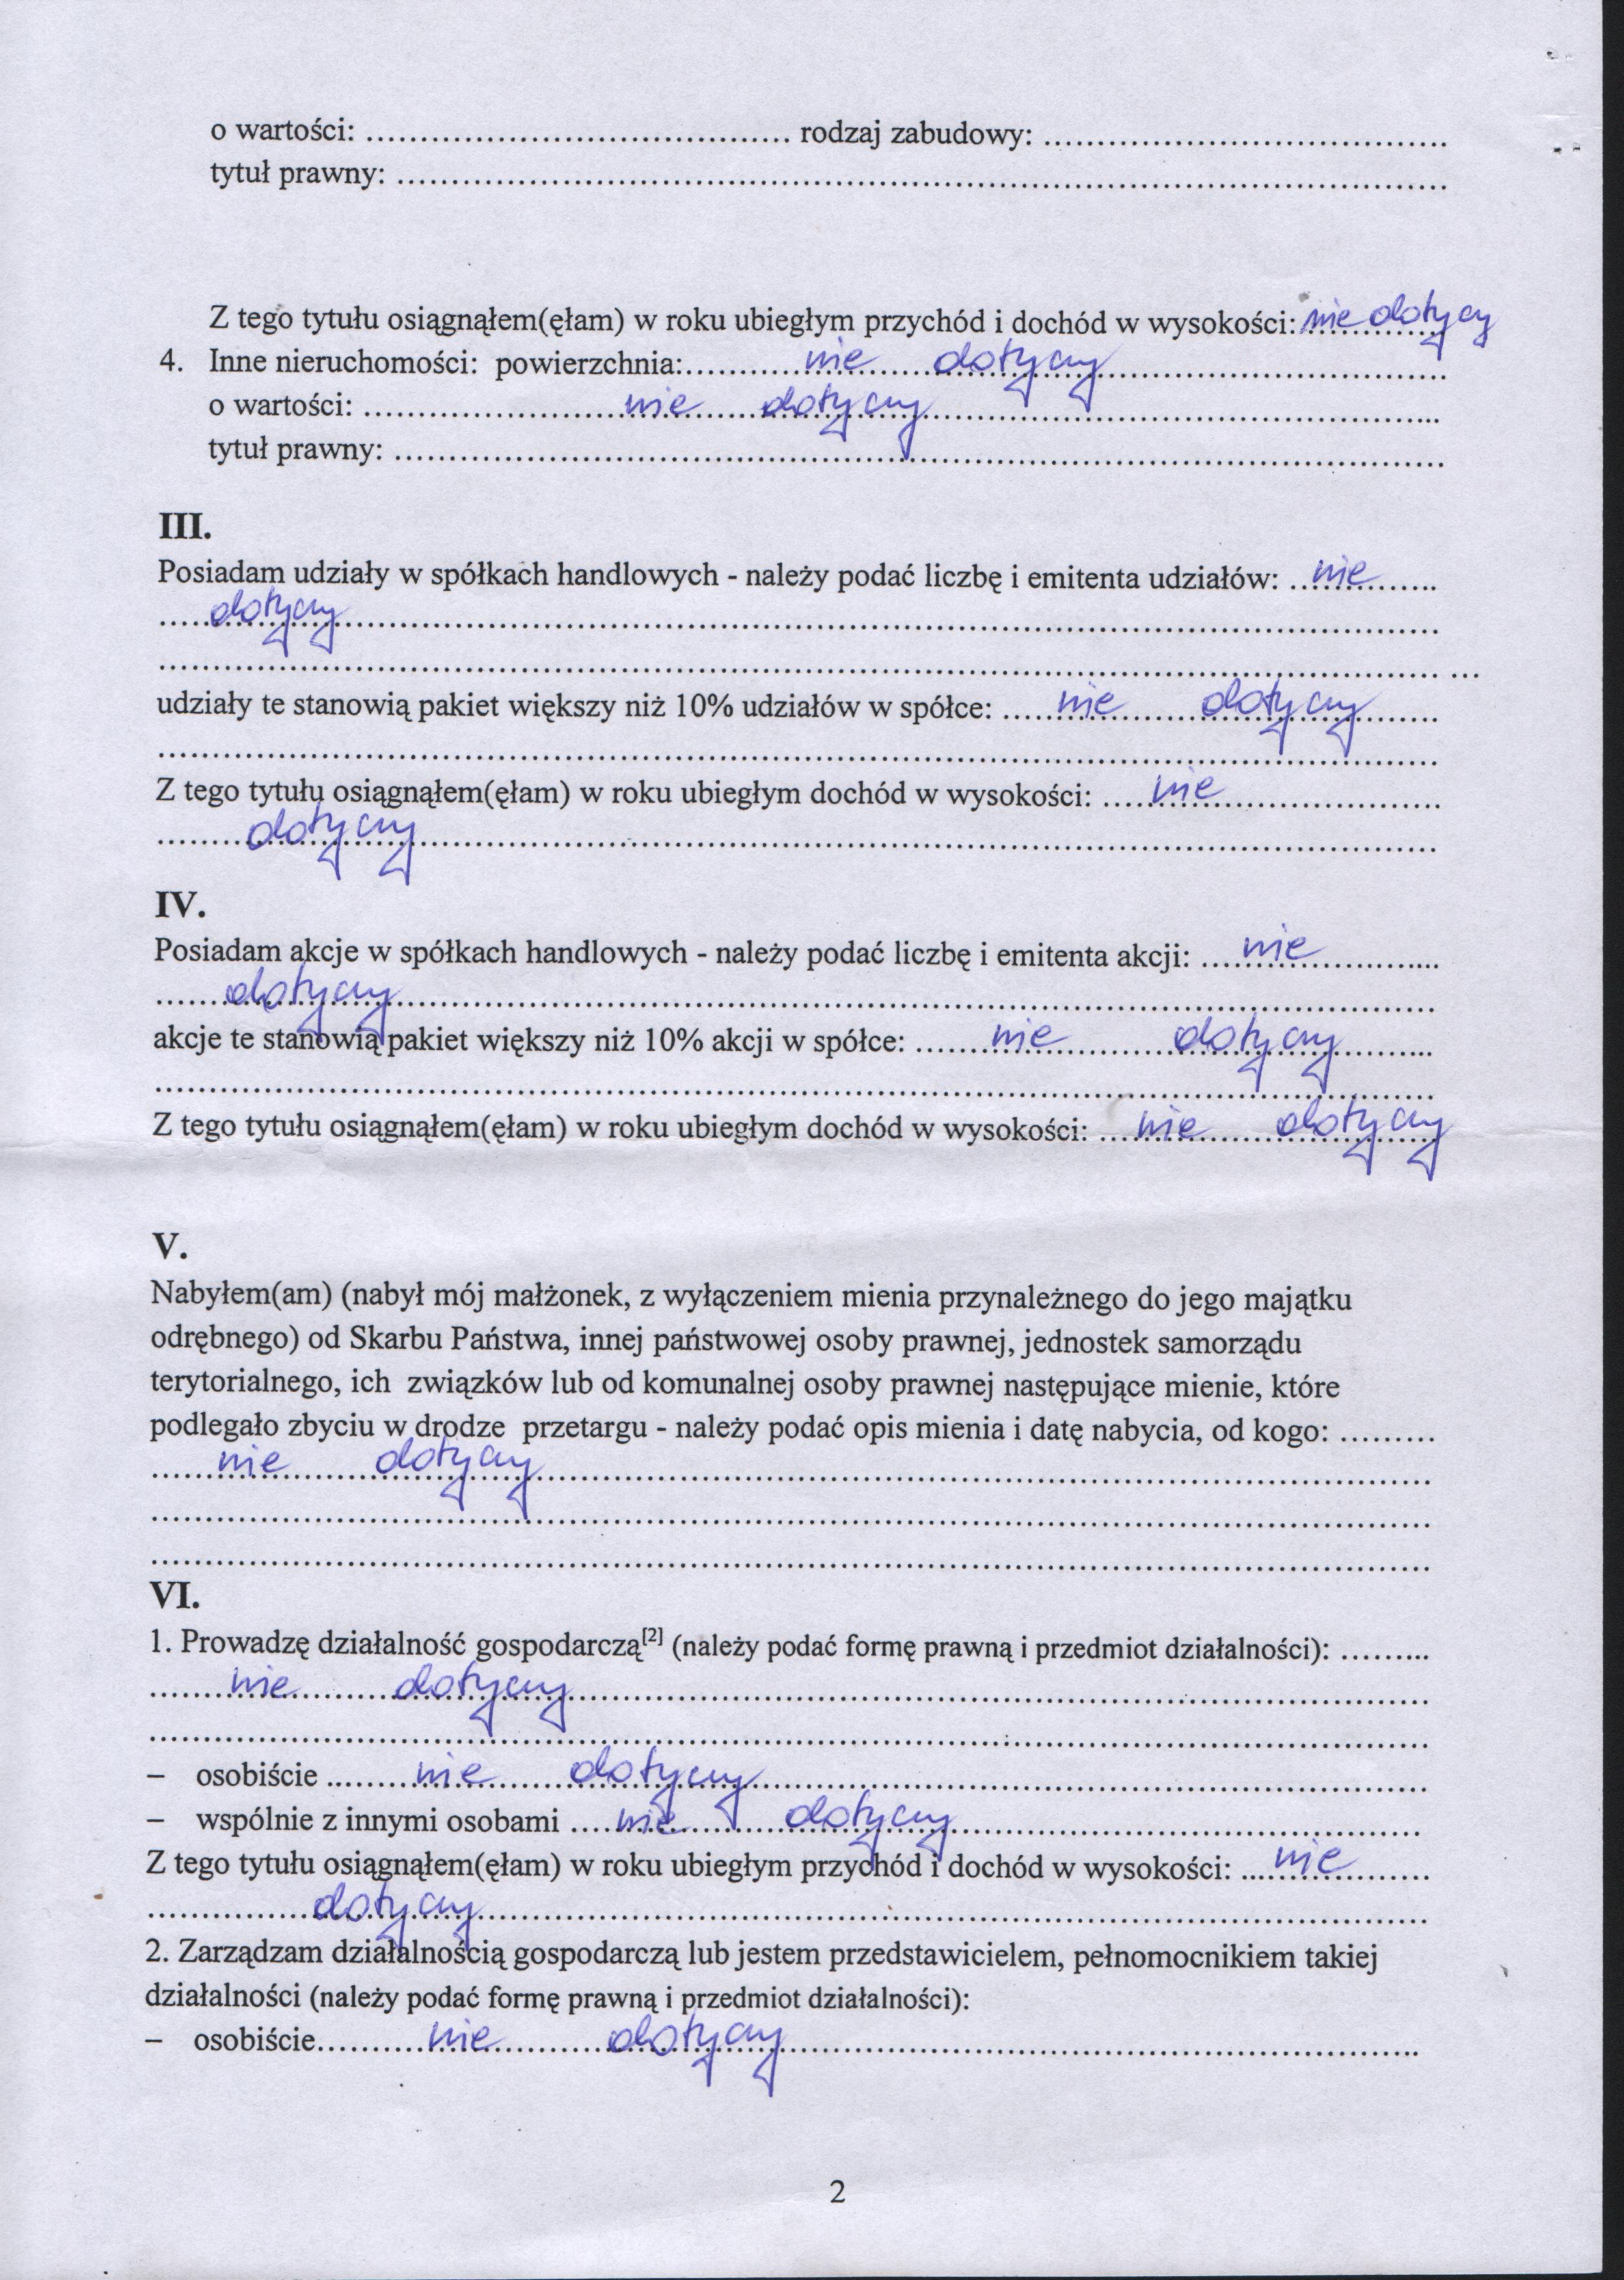 o wartości: ........................................ rodzaj zabudowy: ......................................
tytuł prawny: ....................................................................................................
Z tego tytułu osiągnąłem(ęłam) w roku ubiegłym przychód i dochód w wysokości: nie dotyczy
4. Inne nieruchomości: powierzchnia:........... nie ........ dotyczy ................................
o wartości: ........................ nie ...... dotyczy ................................................
tytuł prawny: ....................................................................................................
III.
Posiadam udziały w spółkach handlowych - należy podać liczbę i emitenta udziałów: .. nie ......
..... dotyczy ..........................................................................................................
.......................................................................................................................... ...
udziały te stanowią pakiet większy niż 10% udziałów w spółce: ..... nie ....... dotyczy .......
..........................................................................................................................
Z tego tytułu osiągnąłem(ęłam) w roku ubiegłym dochód w wysokości: ..... nie ....................
........ dotyczy .......................................................................................................
IV.
Posiadam akcje w spółkach handlowych - należy podać liczbę i emitenta akcji: .... nie ...........
...... dotyczy .........................................................................................................
akcje te stanowią pakiet większy niż 10% akcji w spółce: ....... nie .......... dotyczy .........
..........................................................................................................................
Z tego tytułu osiągnąłem(ęłam) w roku ubiegłym dochód w wysokości: ... nie ....... dotyczy
V.
Nabyłem(am) (nabył mój małżonek, z wyłączeniem mienia przynależnego do jego majątku
odrębnego) od Skarbu Państwa, innej państwowej osoby prawnej, jednostek samorządu
terytorialnego, ich związków lub od komunalnej osoby prawnej następujące mienie, które
podlegało zbyciu w drodze przetargu - należy podać opis mienia i datę nabycia, od kogo: .........
...... nie ........ dotyczy ............................................................................................
..........................................................................................................................
..........................................................................................................................
VI.
1. Prowadzę działalność gospodarczą[2] (należy podać formę prawną i przedmiot działalności): .........
....... nie ......... dotyczy ..........................................................................................
..........................................................................................................................
– osobiście ........ nie ........ dotyczy ..............................................................
– wspólnie z innymi osobami .... nie ......... dotyczy ............................................
Z tego tytułu osiągnąłem(ęłam) w roku ubiegłym przychód i dochód w wysokości: ... nie .......
............... dotyczy ................................................................................................
2. Zarządzam działalnością gospodarczą lub jestem przedstawicielem, pełnomocnikiem takiej
działalności (należy podać formę prawną i przedmiot działalności):
– osobiście.......... nie .......... dotyczy ............................................................
2